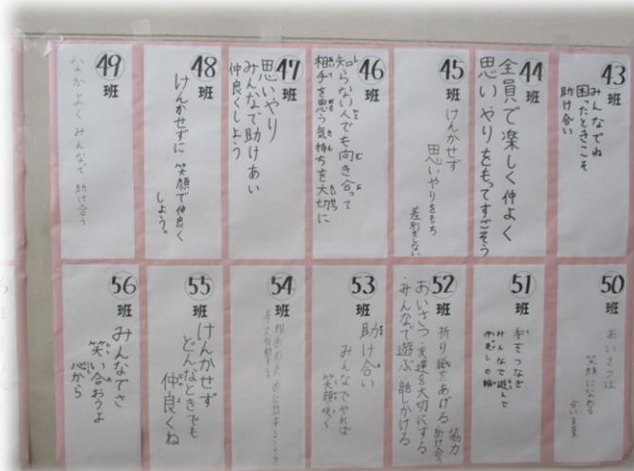 43班
みんなでね
困ったときこそ
助け合い
44班
全員で楽しく仲よく
思いやりをもってすごそう
45班
けんかせず
思いやりをもち
差別をしない
46班
知らない人でも向き合って
相手を思う気持ちを大切に
47班
思いやり
みんなで助けあい
仲良くしよう
48班
けんかせずに
笑顔で仲良く
しよう。
49班
なかよく みんなで 助け合う
50班
あいさつは
笑顔になれる
合い言葉
51班
手をつなぎ
みんなで遊んで
の輪
52班
折り紙をあげる 協力
あいさつ・友達を大切にする 助け合う
みんなで遊ぶ・話しかける
53班
助け合い
みんなでやれば
笑顔咲く
54班
相手の
55班
けんかせず
どんなときでも
仲良くね
56班
みんなでさ
笑い合おうよ
心から